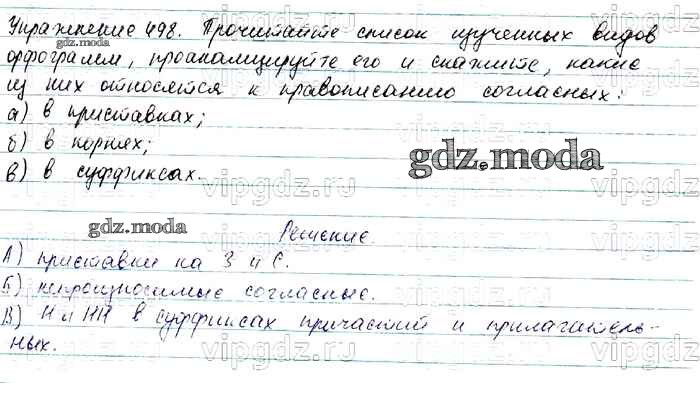 Упражнение 498. Прочитайте список изученных видов
орфограмм, проанализируйте его и скажите, какие
из них относятся к правописанию согласных:
а) в приставках;
б) в корнях;
в) в суффиксах.
Решение
А) приставки на З и С.
Б) непроизносимые согласные.
В) Н и НН в суффиксах причастий и прилагатель-
ных.
gdz.moda
gdz.moda
gdz.moda
vipgdz.ru